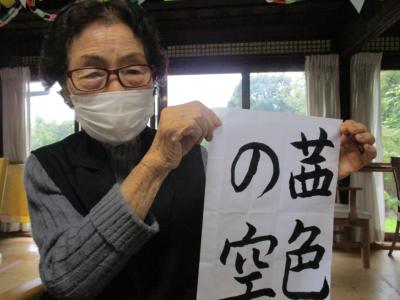 茜色
の空